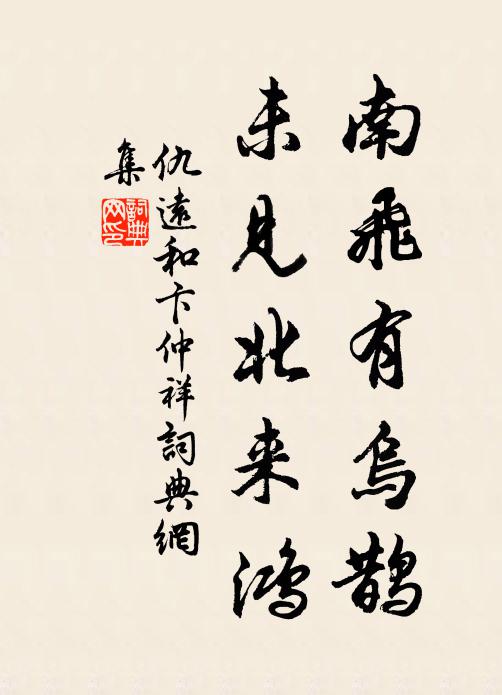 南飛有烏鵲
未見北来鴻
仇遠和卞仲祥詞典網
集
詞典
网印